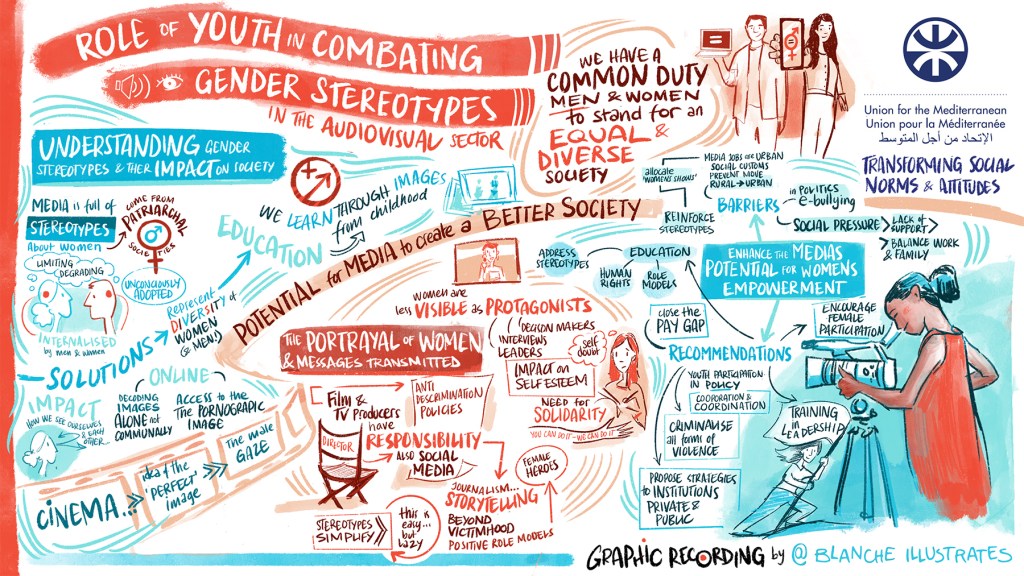 ROLE OF YOUTH IN COMBATING
GENDER STEREOTYPES
IN THE AUDIOVISUAL SECTOR
WE HAVE A
COMMON DUTY
MEN & WOMEN
to stand for an
EQUAL &
DIVERSE
SOCIETY
Union for the Mediterranean
Union pour la Méditerranée
الإتحاد من أجل المتوسط
TRANSFORMING SOCIAL
NORMS & ATTITUDES
UNDERSTANDING GENDER
STEREOTYPES & THEIR IMPACT ON SOCIETY
MEDIA is full of
STEREOTYPES
About women
COME FROM
PATRIARCHAL
SOCIETIES
LIMITING
DEGRADING
UNCONCIOUSLY
ADOPTED
INTERNALISED
by men & women
EDUCATION
WE LEARN THROUGH
IMAGES
from childhood
SOLUTIONS
Represent
DIVERSITY of
WOMEN
(& MEN!)
IMPACT
HOW WE SEE OURSELVES
& EACH
OTHER...
ONLINE
DECODING
IMAGES
ALONE not
COMMUNALLY
ACCESS to the
The PORNOGRAPIC
IMAGE
CINEMA...
idea of the
'PERFECT'
image
The male
GAZE
POTENTIAL for MEDIA to create a BETTER SOCIETY
women are
less VISIBLE as PROTAGONISTS
DECISION MAKERS
INTERVIEWS
LEADERS
IMPACT on
SELF ESTEEM
self
doubt
NEED for
SOLIDARITY
YOU CAN DO IT - WE CAN DO IT
THE PORTRAYAL OF WOMEN
& MESSAGES TRANSMITTED
Film &
TV Producers
have
RESPONSIBILITY
ANTI
DISCRIMINATION
POLICIES
ALSO SOCIAL
MEDIA
DIRECTOR
JOURNALISM...
STORYTELLING
BEYOND
VICTIMHOOD
POSITIVE ROLE MODELS
FEMALE
HEROES
STEREOTYPES
SIMPLIFY
this is
easy...
but
lazy
MEDIA JOBS are URBAN
SOCIAL CUSTOMS
PREVENT MOVE
RURAL → URBAN
allocate
'WOMENS SHOWS'
REINFORCE
STEREOTYPES
BARRIERS
in POLITICS
e-bullying
SOCIAL PRESSURE
LACK of
SUPPORT
BALANCE WORK
& FAMILY
ENHANCE the MEDIAS
POTENTIAL for WOMENS
EMPOWERMENT
EDUCATION
ADDRESS
STEREOTYPES
HUMAN
RIGHTS
ROLE
MODELS
close the
PAY GAP
ENCOURAGE
FEMALE
PARTICIPATION
RECOMMENDATIONS
YOUTH PARTICIPATION
in POLICY
COOPERATION &
COORDINATION
CRIMINALISE
all forms of
VIOLENCE
PROPOSE STRATEGIES
to INSTITUTIONS
PRIVATE &
PUBLIC
TRAINING
in
LEADERSHIP
GRAPHIC RECORDING by @ BLANCHE ILLUSTRATES